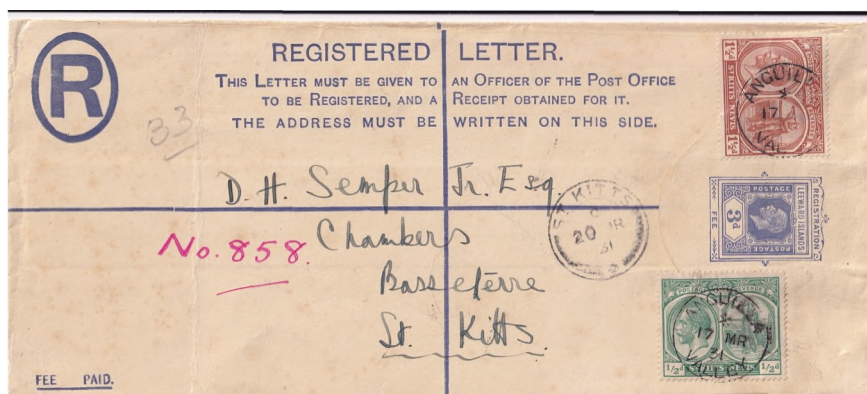 R
REGISTERED LETTER.
THIS LETTER MUST BE GIVEN TO AN OFFICER OF THE POST OFFICE
TO BE REGISTERED, AND A RECEIPT OBTAINED FOR IT.
THE ADDRESS MUST BE WRITTEN ON THIS SIDE.
33
D. H. Semper Jr. Esq.
No. 858.
Chambers
Basseterre
St. Kitts.
FEE PAID.
ST. KITTS
20 MR
31
1½d ST KITTS NEVIS 1½d
ANGUILLA
17
VAL
REGISTRATION FEE
POSTAGE
LEEWARD ISLANDS
3d
POSTAGE
POSTAGE REVENUE
ANGUILLA
17 MR
31
VALLEY
1/2d 1/2d